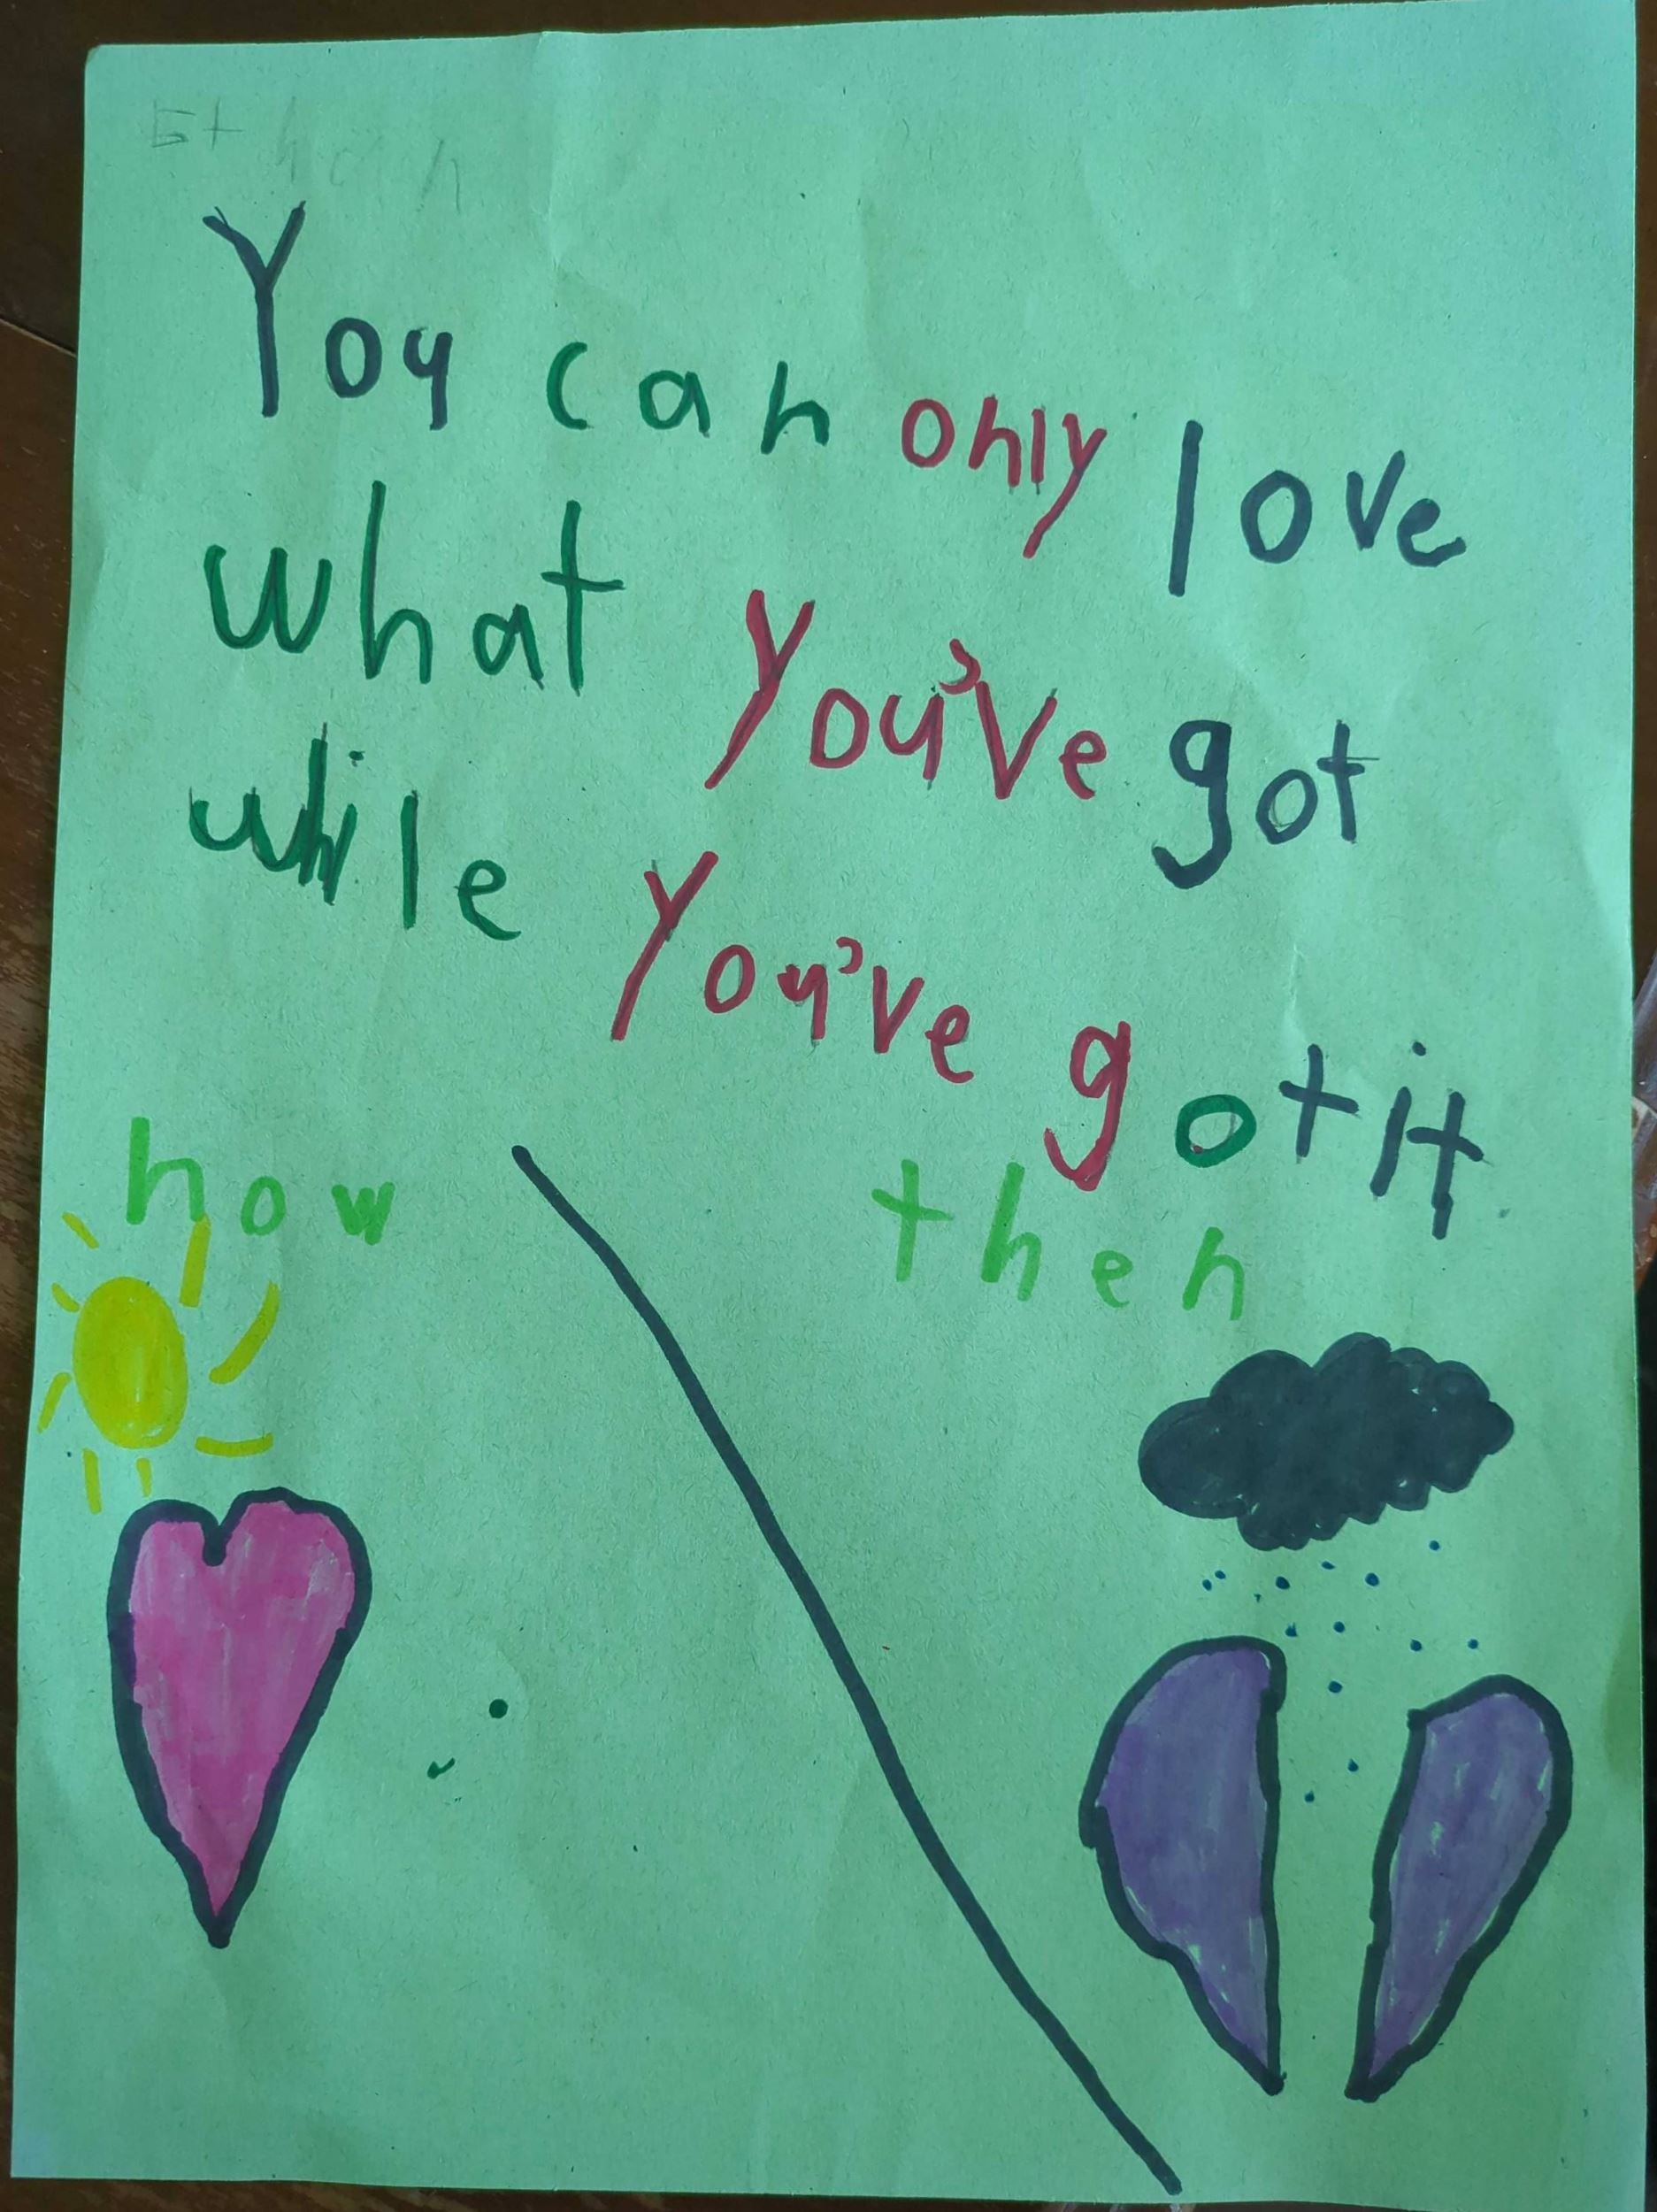 Ethan
You can only love
what you've got
while you've got it
now then